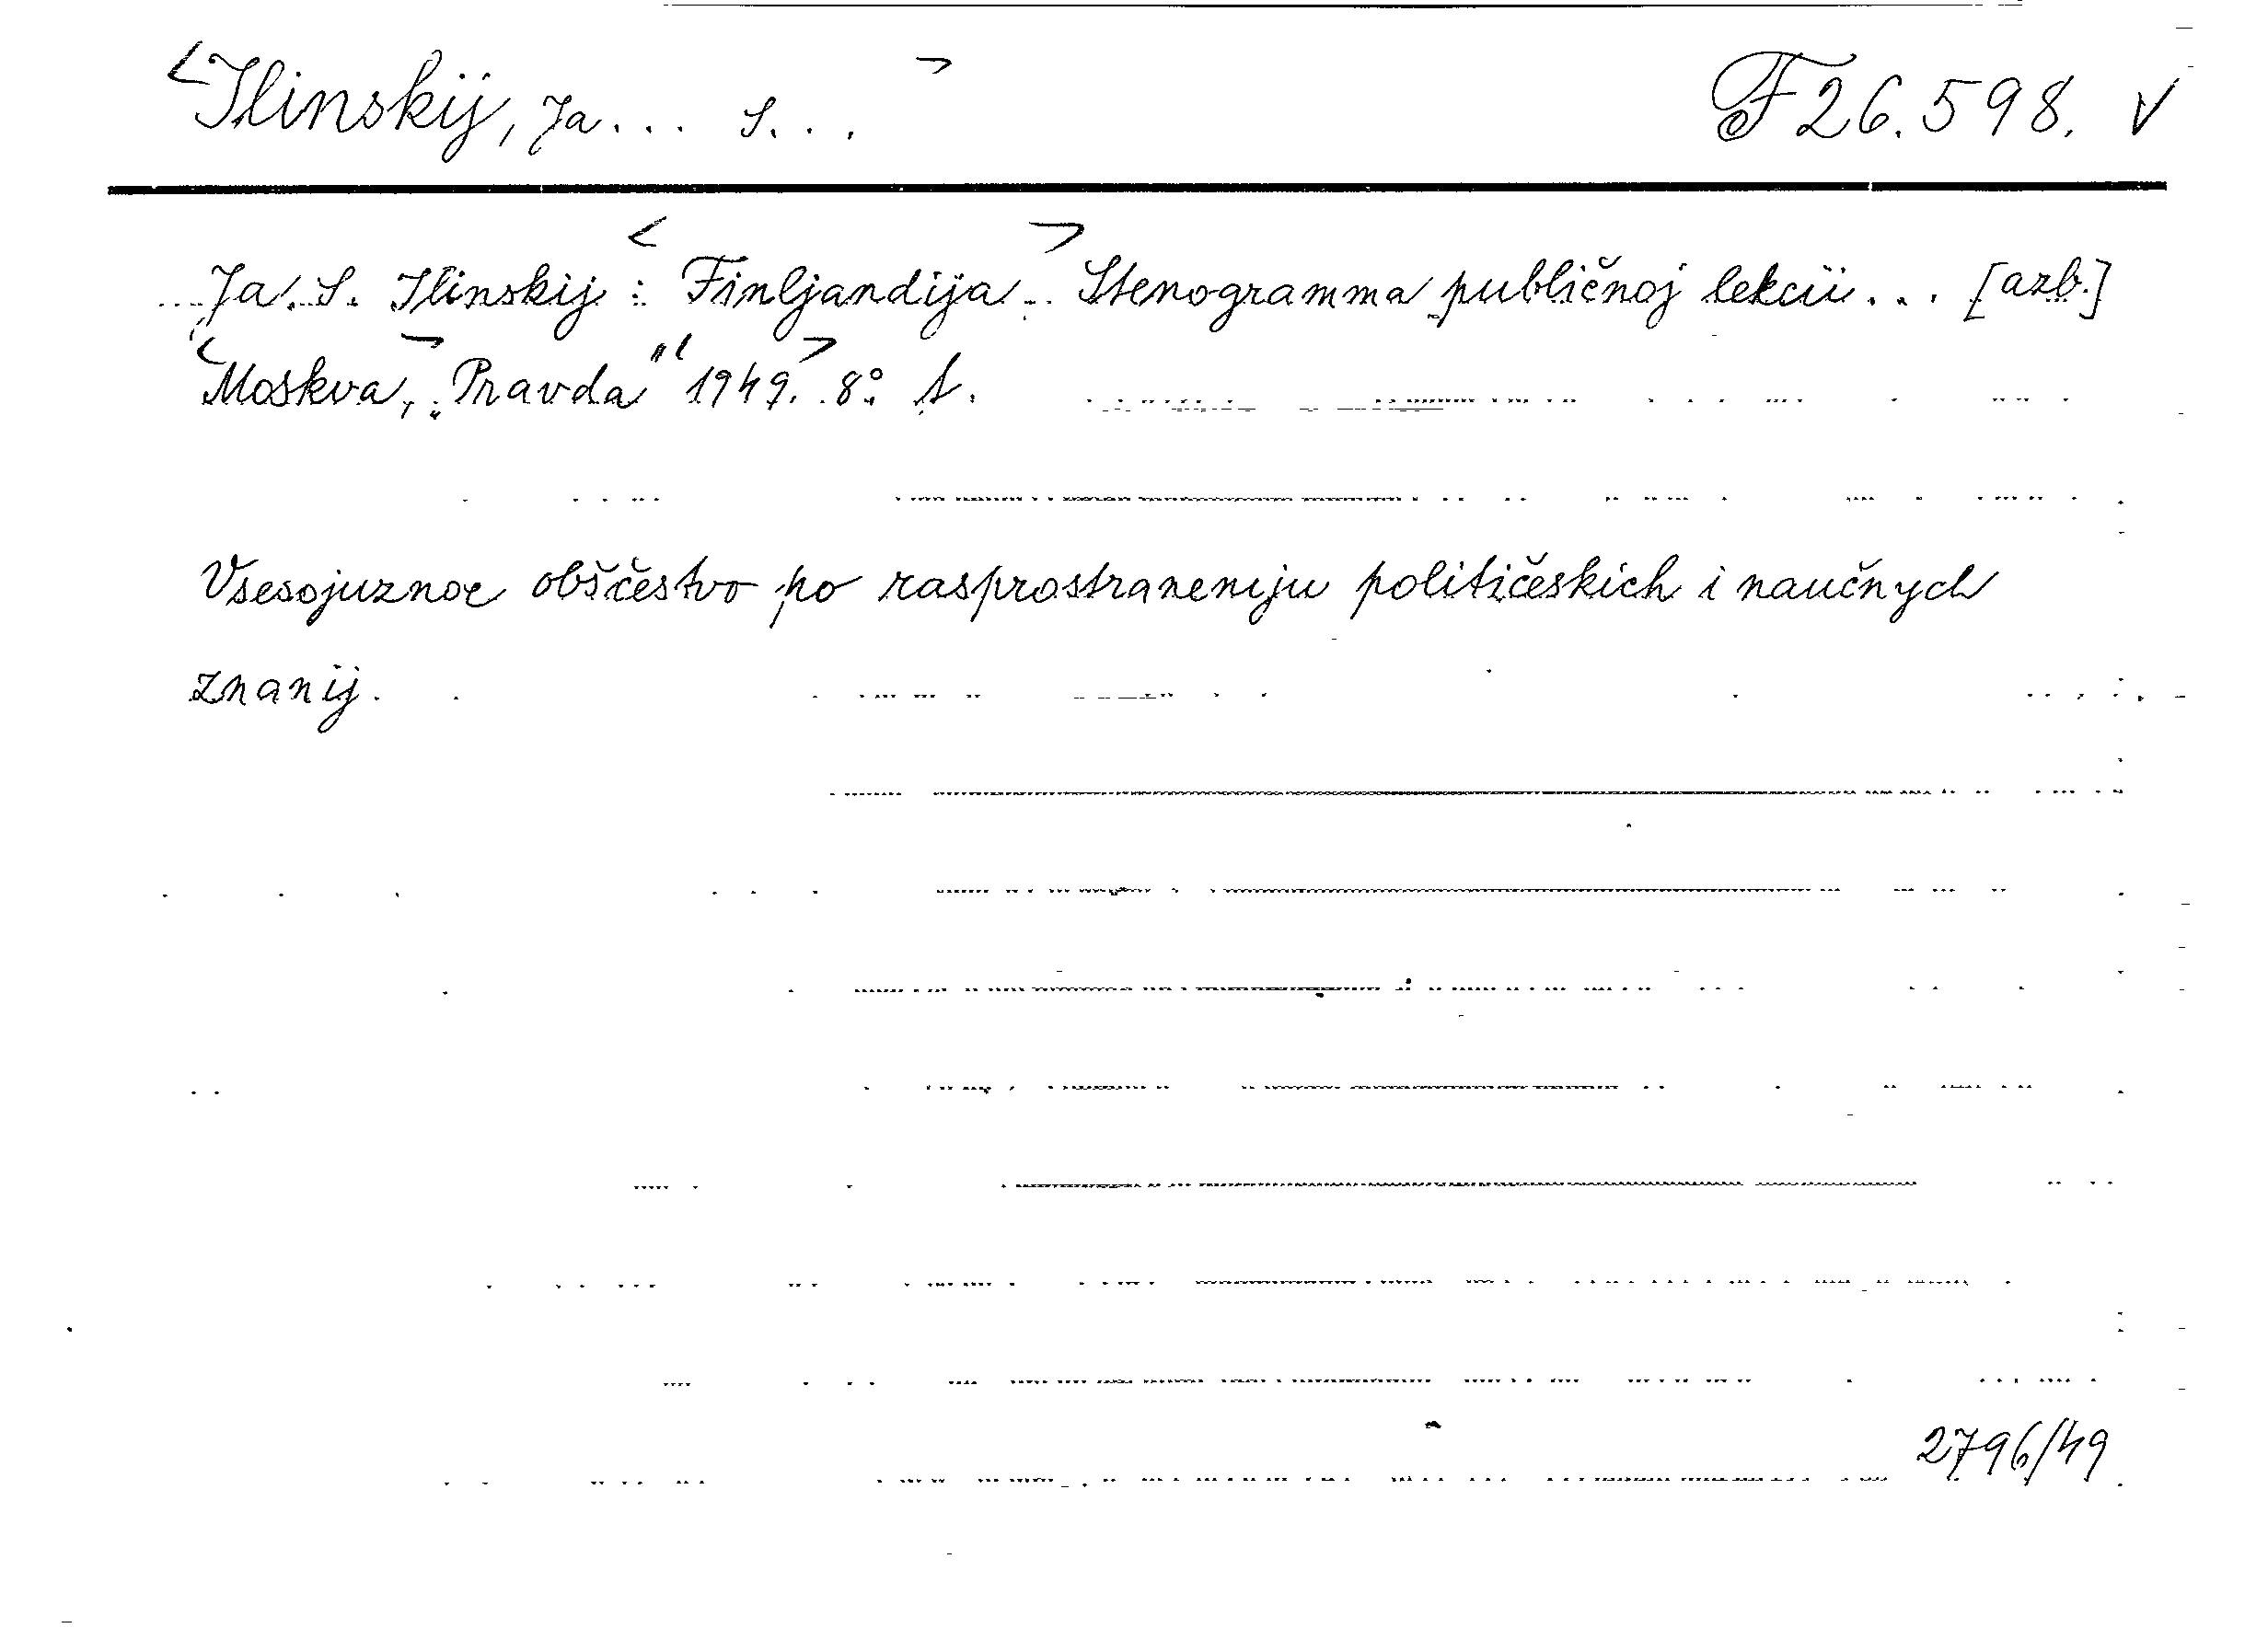 <Ilinskij, Ja... S...> F 26.598. V
Ja. S. Ilinskij : <Finljandija.> Stenogramma publičnoj lekcii... [azb.]
<Moskva,> „Pravda” <1949.> 8° s.
Vsesojuznoe obščestvo po rasprostraneniju političeskich i naučnych
znanij.
2796/49